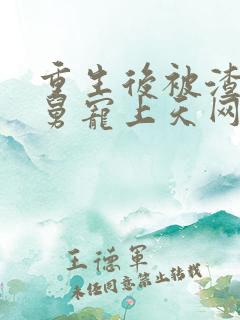 重生後被渣
舅寵上天网
王德軍
未经同意禁止转载